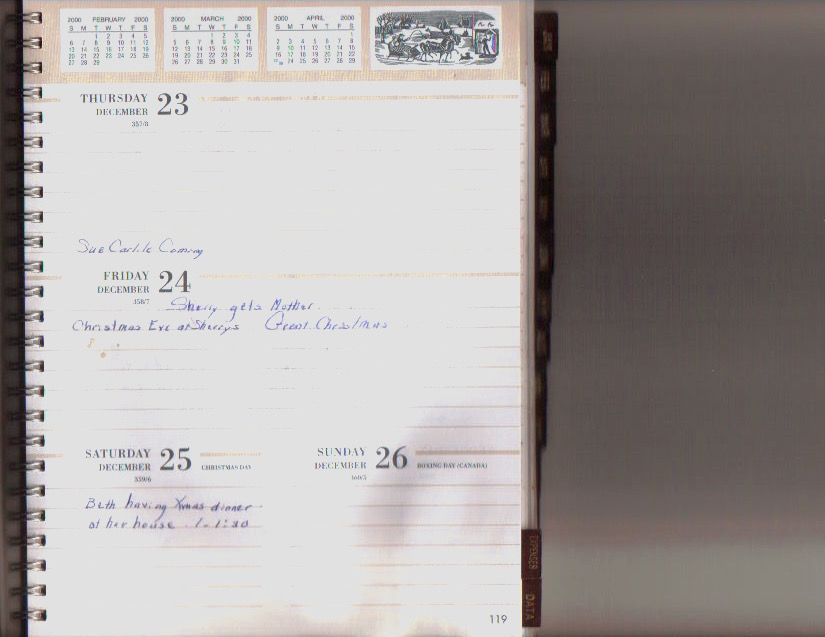 2000 FEBRUARY 2000
S M T W T F S
1 2 3 4 5
6 7 8 9 10 11 12
13 14 15 16 17 18 19
20 21 22 23 24 25 26
27 28 29
2000 MARCH 2000
S M T W T F S
1 2 3 4
5 6 7 8 9 10 11
12 13 14 15 16 17 18
19 20 21 22 23 24 25
26 27 28 29 30 31
2000 APRIL 2000
S M T W T F S
1
2 3 4 5 6 7 8
9 10 11 12 13 14 15
16 17 18 19 20 21 22
24 25 26 27 28 29
THURSDAY 23
DECEMBER
357/8
Sue Carlile Coming
FRIDAY 24
DECEMBER
358/7
Sherry gets Mother
Christmas Eve at Sherrys Great Christmas
SATURDAY 25
DECEMBER CHRISTMAS DAY
359/6
Beth having Xmas dinner
at her house 1-1:30
SUNDAY 26
DECEMBER BOXING DAY (CANADA)
360/5
119
EXPENSES
DATA